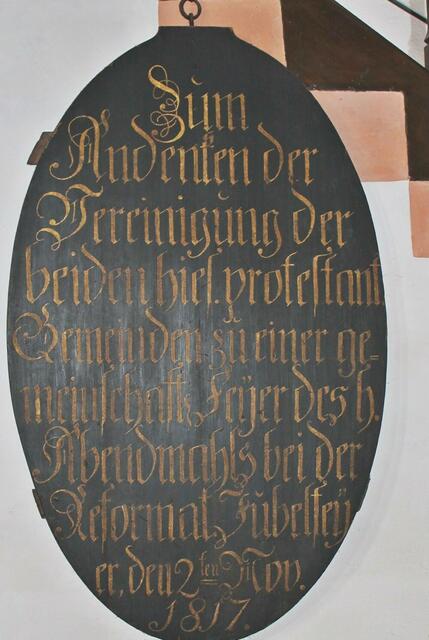 Zum
Andenken der
Vereinigung der
beiden hies. protestant.
Gemeinden zu einer ge=
meinschaftl. Feÿer des h.
Abendmahls bei der
Reformat. Jubelfeÿ
er, den 2ten Nov.
1817.